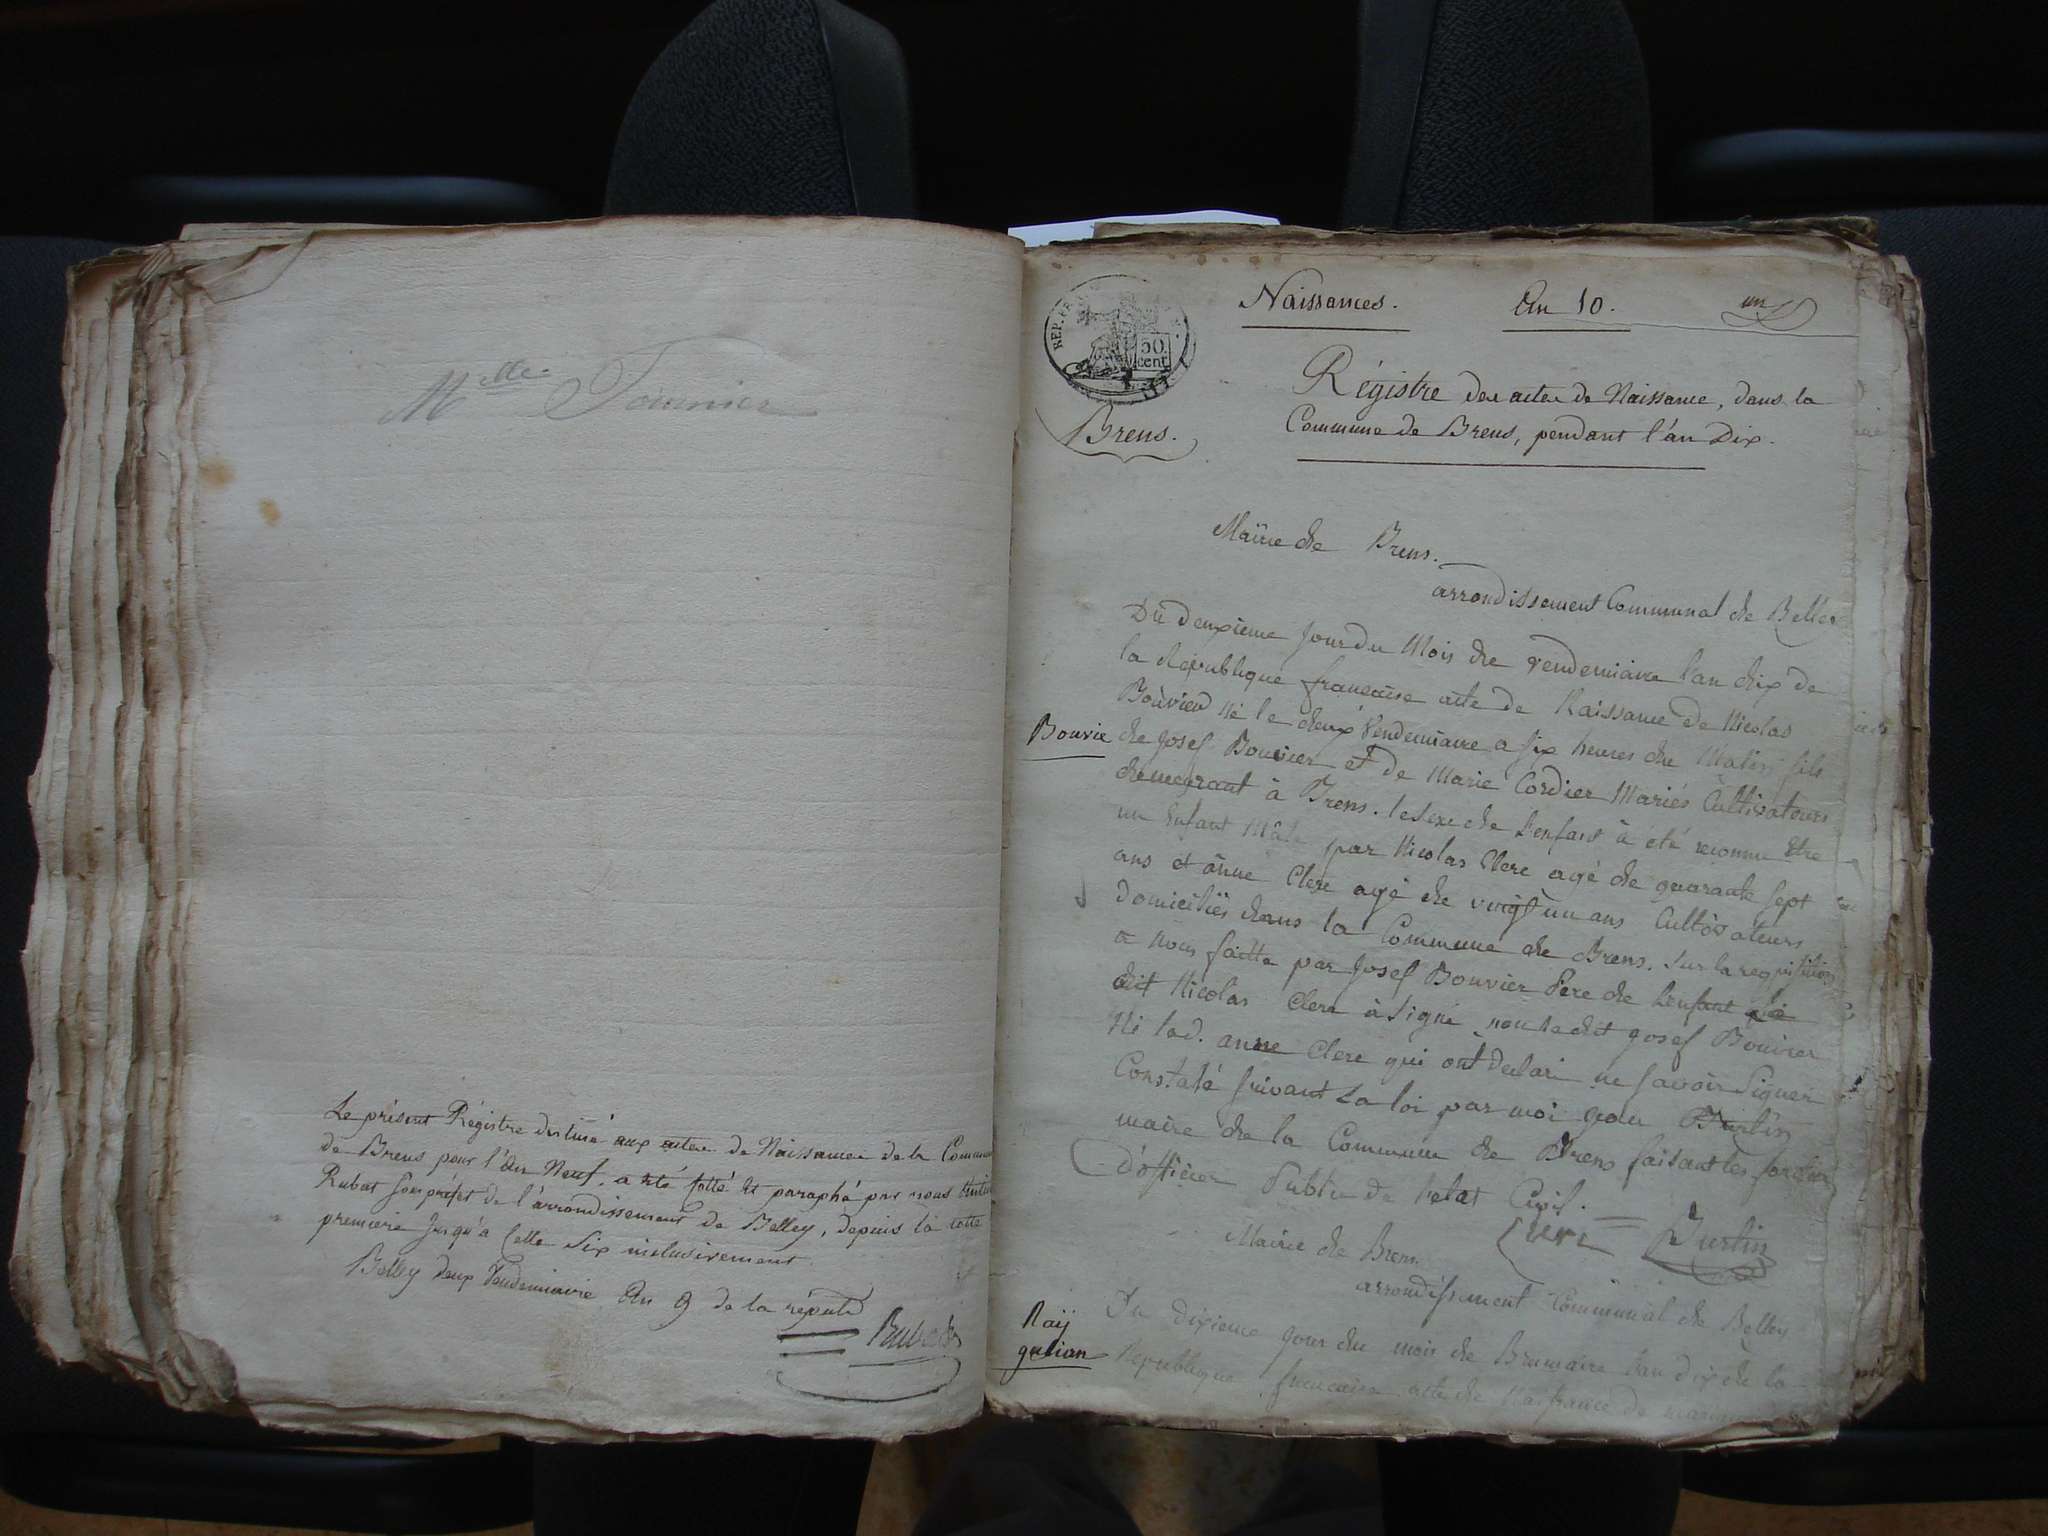 Mlle Fournier
Le présent Régistre destiné aux actes de Naissance de la Commune
de Brens pour l'an Neuf, a été cotté et paraphé par nous
Rubat souspréfet de l'arrondissement de Belley, depuis la cotte
premiere jusqu'à celle six inclusivement
Belley deux Vendemiaire An 9 de la répub
Rubat
REP. FR
50
cent
Naissances. An 10. un
Brens.
Régistre des actes de Naissance, dans la
Commune de Brens, pendant l'an Dix.
Mairie de Brens.
arrondissement Communal de Belley
Du deuxieme jour du Mois de vendemiaire l'an dix de
la République francaise acte de Naissance de Nicolas
Bouvier né le deux Vendemiaire a six heures du Matin fils
Bouvie
de Josef Bouvier et de Marie Cordier Mariés Cultivateurs
demeurant à Brens. le sexe de l'enfant à été reconnu être
un Enfant Mâle par Nicolas Clerc agé de quarante sept
ans et anne Clerc agé de vingt un ans Cultivateurs
domiciliés dans la Commune de Brens. sur la requisition
a nous faitte par Josef Bouvier Pere de l'enfant
dit Nicolas Clerc à Signé non ledit Josef Bouvier
Ni lad. anne Clerc qui ont declaré ne savoir Signer
Constaté suivant La loi par moi Burtin
maire de la Commune de Brens faisant les fonctions
d'officier Public de l'etat Civil.
Clerc Burtin
Mairie de Brens
arrondissement Communal de Belley
Du dixieme jour du mois de Brumaire l'an dix de la
Raÿ
gulian
Republique francaise acte de Naissance de